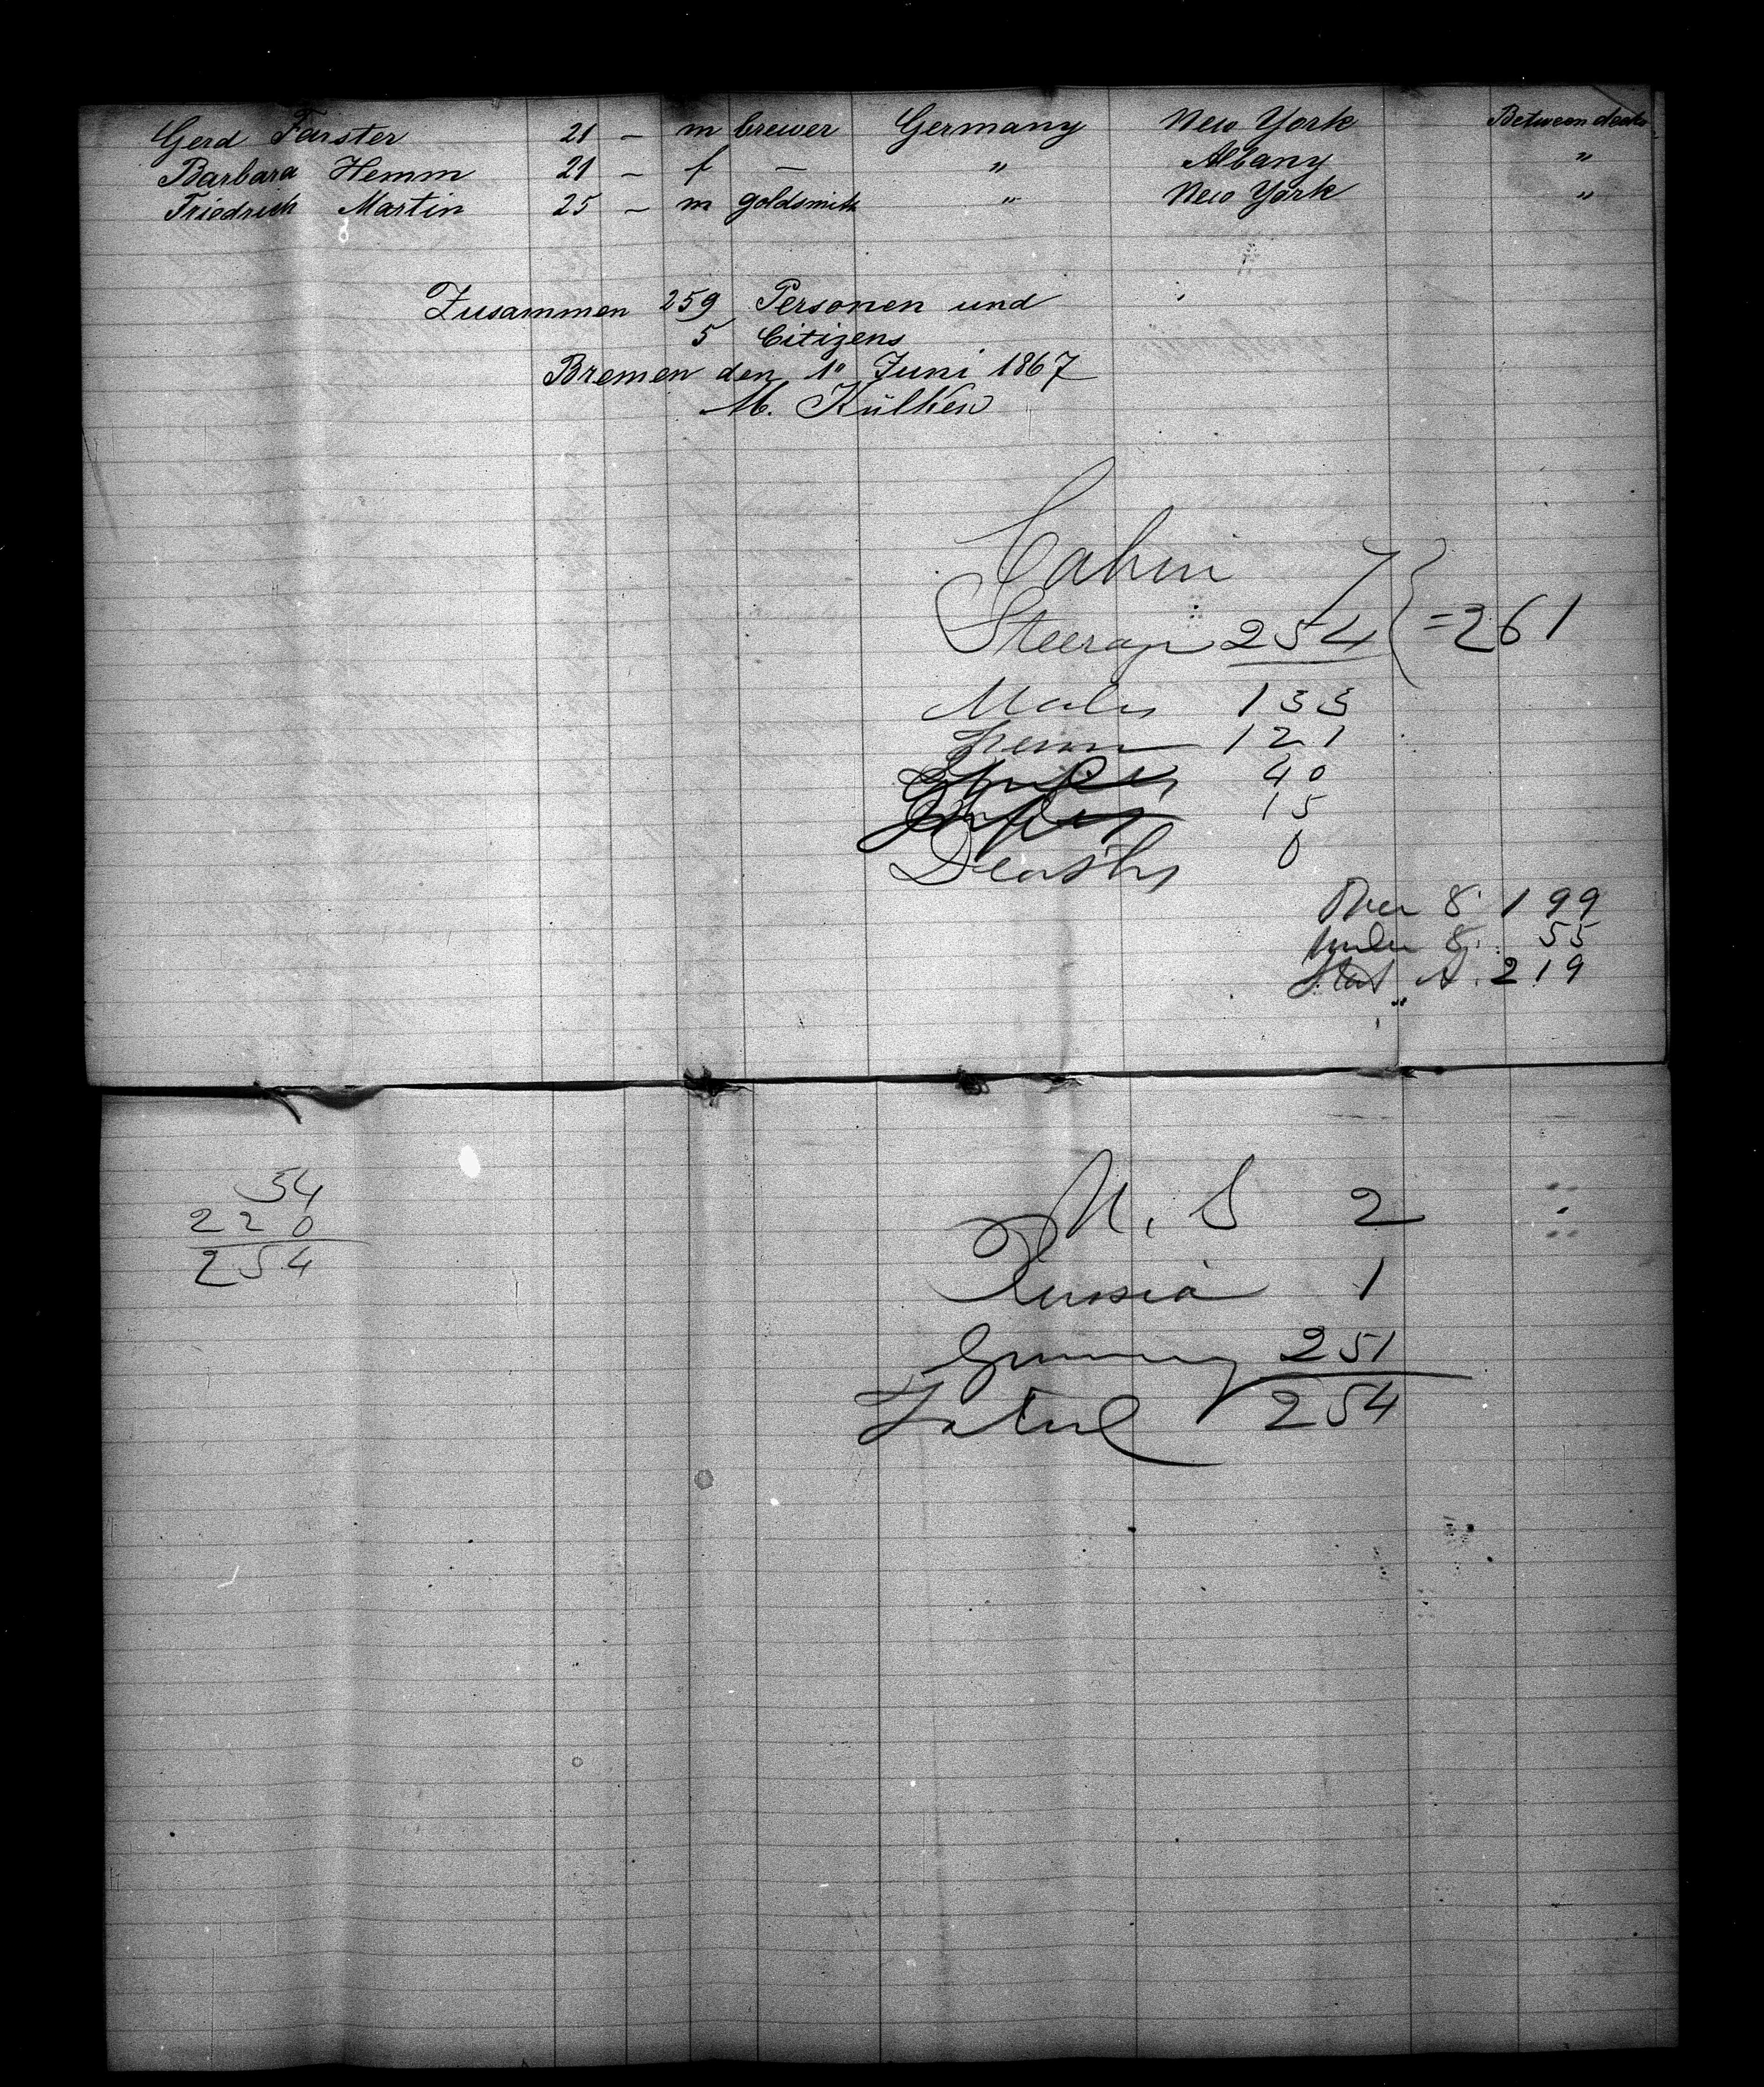 Gerd Farster 21 - m brewer Germany New York Between decks
Barbara Hemm 21 - f - " Albany "
Friedrich Martin 25 - m goldsmith " New York "
Zusammen 259 Personen und
5 Citizens
Bremen den 1" Juni 1867
M. Külken
Cabin 7
Steerage 254 } = 261
Males 133
Fem 121
40
15
Deaths 0
Over 8. 199
Under 8. 55
219
34
220
254
U. S 2
Russia 1
Germany 251
Total 254